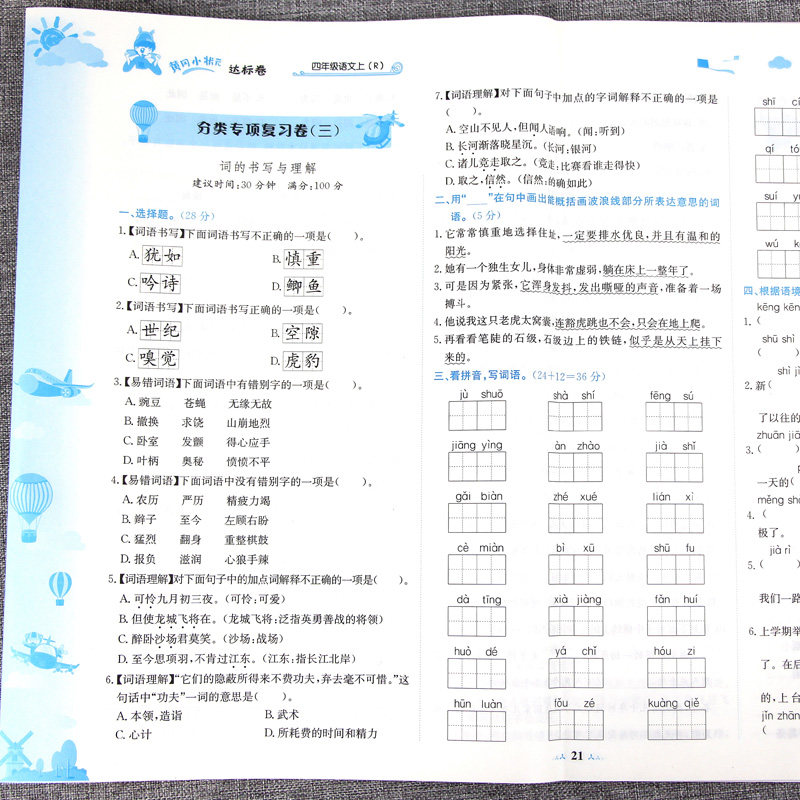 黄冈小状元 达标卷 四年级语文上(R)
分类专项复习卷(三)
词的书写与理解
建议时间:30分钟 满分:100分
一、选择题。(28分)
1.【词语书写】下面词语书写不正确的一项是( )。
A.犹如 B.慎重
C.吟诗 D.鲫鱼
2.【词语书写】下面词语书写正确的一项是( )。
A.世纪 B.空隙
C.嗅觉 D.虎豹
3.【易错词语】下面词语中有错别字的一项是( )。
A.豌豆 苍蝇 无缘无故
B.撤换 求饶 山崩地烈
C.卧室 发颤 得心应手
D.叶柄 奥秘 愤愤不平
4.【易错词语】下面词语中没有错别字的一项是( )。
A.农历 严历 精疲力竭
B.辫子 至今 左顾右盼
C.猛烈 翻身 重整棋鼓
D.报负 滋润 心狼手辣
5.【词语理解】对下面句子中的加点词解释不正确的一项是( )。
A.可怜九月初三夜。(可怜:可爱)
B.但使龙城飞将在。(龙城飞将:泛指英勇善战的将领)
C.醉卧沙场君莫笑。(沙场:战场)
D.至今思项羽,不肯过江东。(江东:指长江北岸)
6.【词语理解】“它们的隐蔽所得来不费功夫,弃去毫不可惜。”这
句话中“功夫”一词的意思是( )。
A.本领,造诣 B.武术
C.心计 D.所耗费的时间和精力
7.【词语理解】对下面句子中加点的字词解释不正确的一项是
( )。
A.空山不见人,但闻人语响。(闻:听到)
B.长河渐落晓星沉。(长河:银河)
C.诸儿竞走取之。(竞走:比赛看谁走得快)
D.取之,信然。(信然:的确如此)
二、用“____”在句中画出能概括画波浪线部分所表达意思的词
语。(5分)
1.它常常慎重地选择住址,一定要排水优良,并且有温和的
阳光。
2.她有一个独生女儿,身体非常虚弱,躺在床上一整年了。
3.可是因为紧张,它浑身发抖,发出嘶哑的声音,准备着一场
搏斗。
4.他说我这只老虎太窝囊,连豁虎跳也不会,只会在地上爬。
5.再看看笔陡的石级,石级边上的铁链,似乎是从天上挂下
来的。
三、看拼音,写词语。(24+12=36分)
jù shuō shà shí fēng sú
jiāng yìng àn zhào jià shǐ
gǎi biàn zhé xué lián xì
cè miàn bì xū shū fu
dà tīng xià jiàng fǎn huí
huò dé yá chǐ hóu zi
hūn luàn fǒu zé kuàng qiě
21
shī
qí
suí
wú
四、根据语境
kēng kēng
1.(
shū shì
( )
shì
2.新(
了以往的
zhuān
3.(
一天的(
měng
4.(
极了。
jià rì
5.(
我们一路
6.上学期举
了。在
的,上台
jǐn zhāng
(